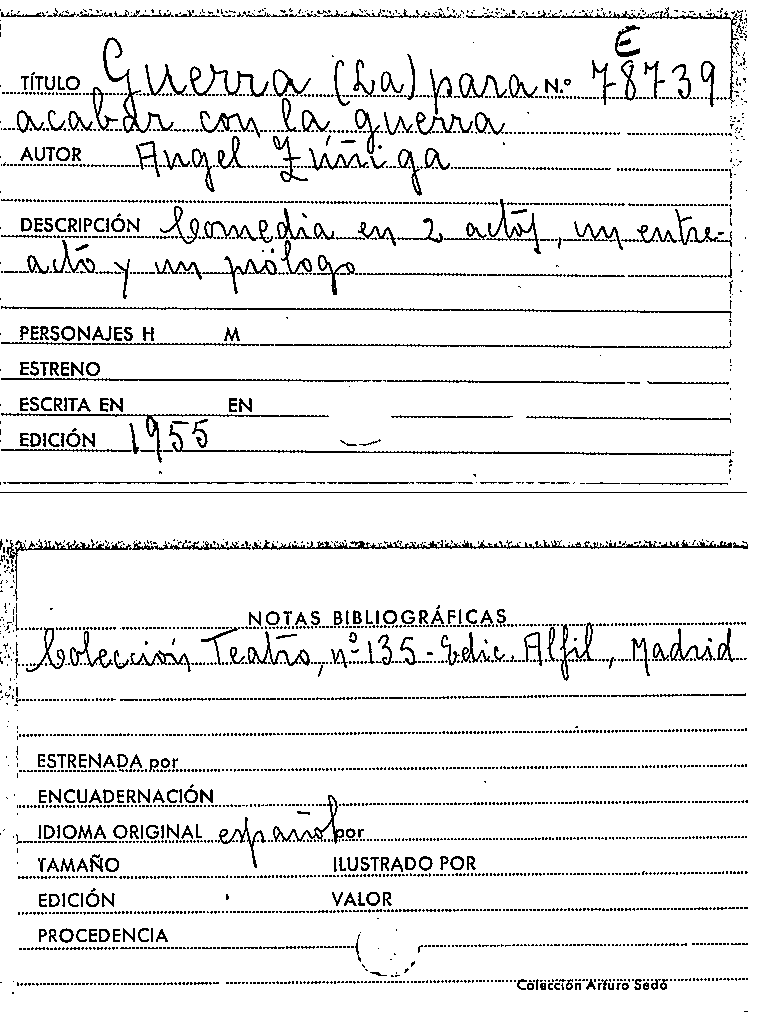 E
TÍTULO Guerra (La) para N.º 78739
acabar con la guerra
AUTOR Angel Zúñiga
DESCRIPCIÓN Comedia en 2 actos, un entre-
acto y un prólogo
PERSONAJES H M
ESTRENO
ESCRITA EN EN
EDICIÓN 1955
NOTAS BIBLIOGRÁFICAS
Colección Teatro, nº 135 - Edic. Alfil, Madrid
ESTRENADA por
ENCUADERNACIÓN
IDIOMA ORIGINAL español por
TAMAÑO ILUSTRADO POR
EDICIÓN VALOR
PROCEDENCIA
Colección Arturo Sedó